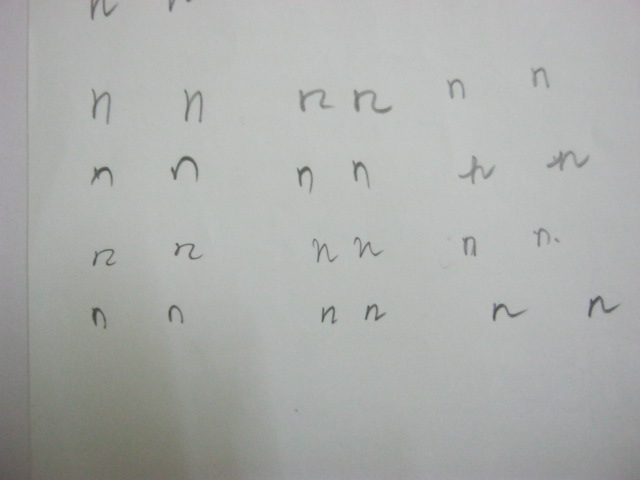 n n
n n n n n n
n n n n n n
n n n n n n.
n n n n n n